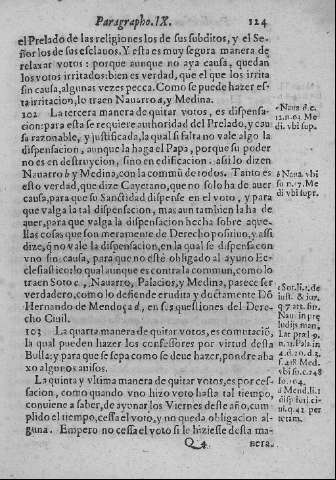 Paragrapho.IX. 124
el Prelado de las religiones los de sus subditos, y el Se-
ñor los de sus esclauos. Y esta es muy segura manera de
relaxar votos: porque aunque no aya causa, quedan
los votos irritados: bien es verdad, que el que los irrita
sin causa, algunas vezes pecca. Como se puede hazer es-
ta irritacion, lo traen Nauarro a, y Medina.
102 La tercera manera de quitar votos, es dispensa-
cion: para esta se requiere authoridad del Prelado, y cau
sa razonable, y justificada, la qual si falta no vale algo la
dispensacion, aunque la haga el Papa, porque su poder
no es en destruycion, sino en edificacion: assi lo dizen
Nauarro b y Medina, con la commũ de todos. Tanto es
esto verdad, que dize Cayetano, que no solo ha de auer
causa, para que su Sanctidad dispense en el voto, y para
que valga la tal dispensacion, mas aun tambien la ha de
auer, para que valga la dispensacion hecha sobre aque-
llas cosas que son meramente de Derecho positiuo, y assi
dize, q̃ no vale la dispensacion, en la qual se dispensa con
vno sin causa, para que no estè obligado al ayuno Ec-
clesiastico: lo qual aunque es contra la commun, como lo
traen Soto c, Nauarro, Palacios, y Medina, parece ser
verdadero, como lo defiende erudita y doctamente Dõ
Hernando de Mendoça d, en sus questiones del Dere-
cho Ciuil.
103 La quarta manera de quitar votos, es comutaciõ,
la qual pueden hazer los confessores por virtud desta
Bulla: y para que se sepa como se deue hazer, pondre aba
xo algunos auisos.
La quinta y vltima manera de quitar votos, es por ces-
sacion, como quando vno hizo voto hasta tal tiempo,
conuiene a saber, de ayunar los Viernes deste año, cum
plido el tiempo, cessa el voto, y no queda obligacion al-
guna. Empero no cessa el voto si le hiziesse desta ma-
Q 4 nera.
a Naua d.c.
12.n.61 Me
di. vbi sup.
b Naua. vbi
su n.7. Me
di vbi supr.
c Sot.li.7.de
iust. & iur.
Nau. in pre
ludijs man.
Pala. in
4.d.20.d.3.
Med.
vbi su. c.248
d Mend.li.1
disp iuri. ci-
ui.q.42 per
totam.